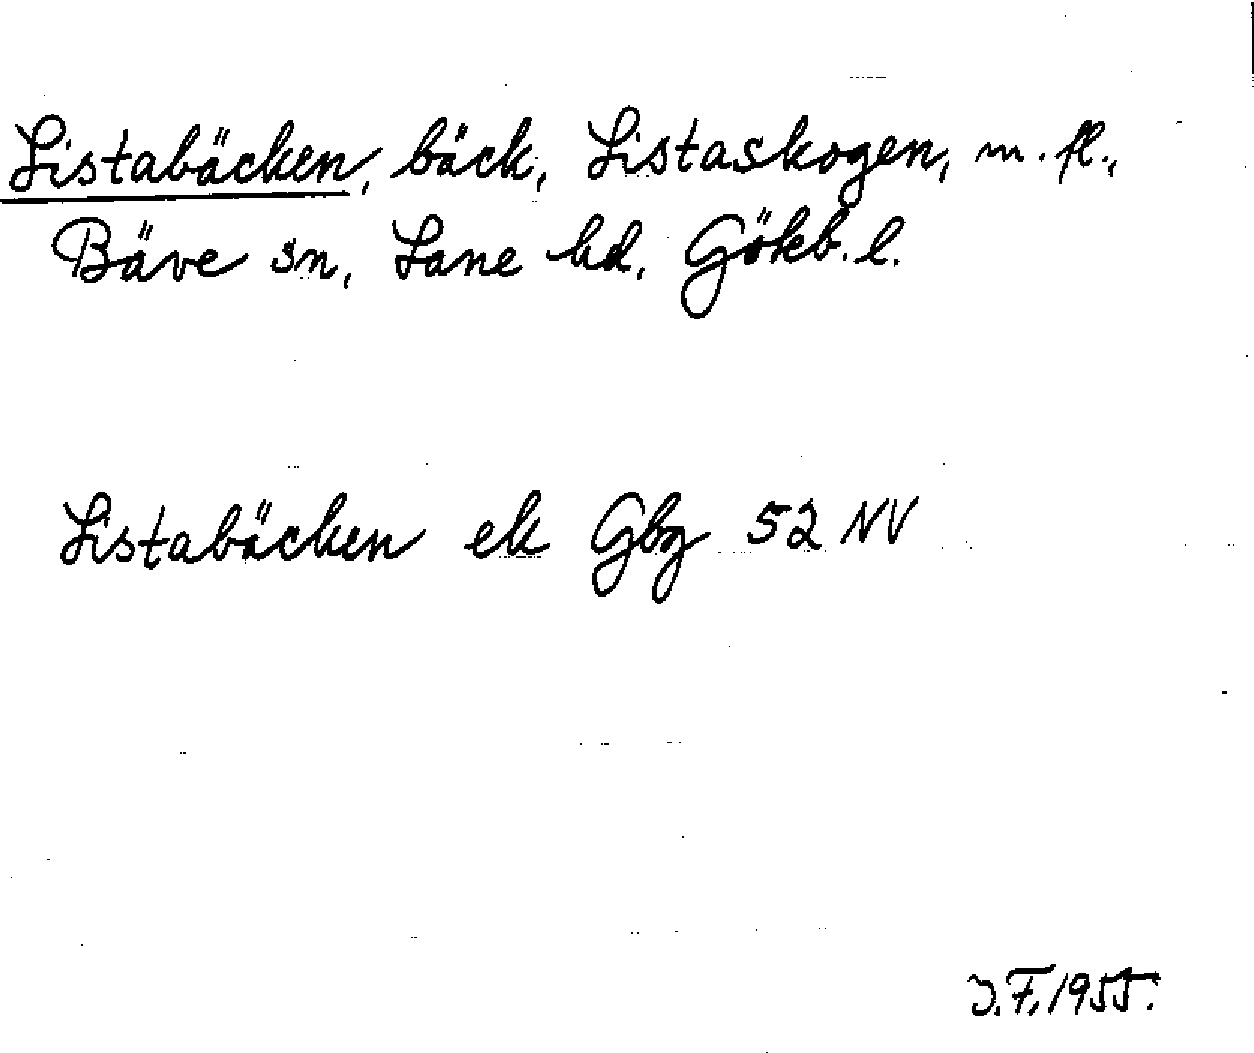 Listabäcken, bäck, Listaskogen, m. fl.,
Bäve sn, Lane hd, Gökb. l.
Listabäcken ek Gbg 52 NV
J.F. 1955.